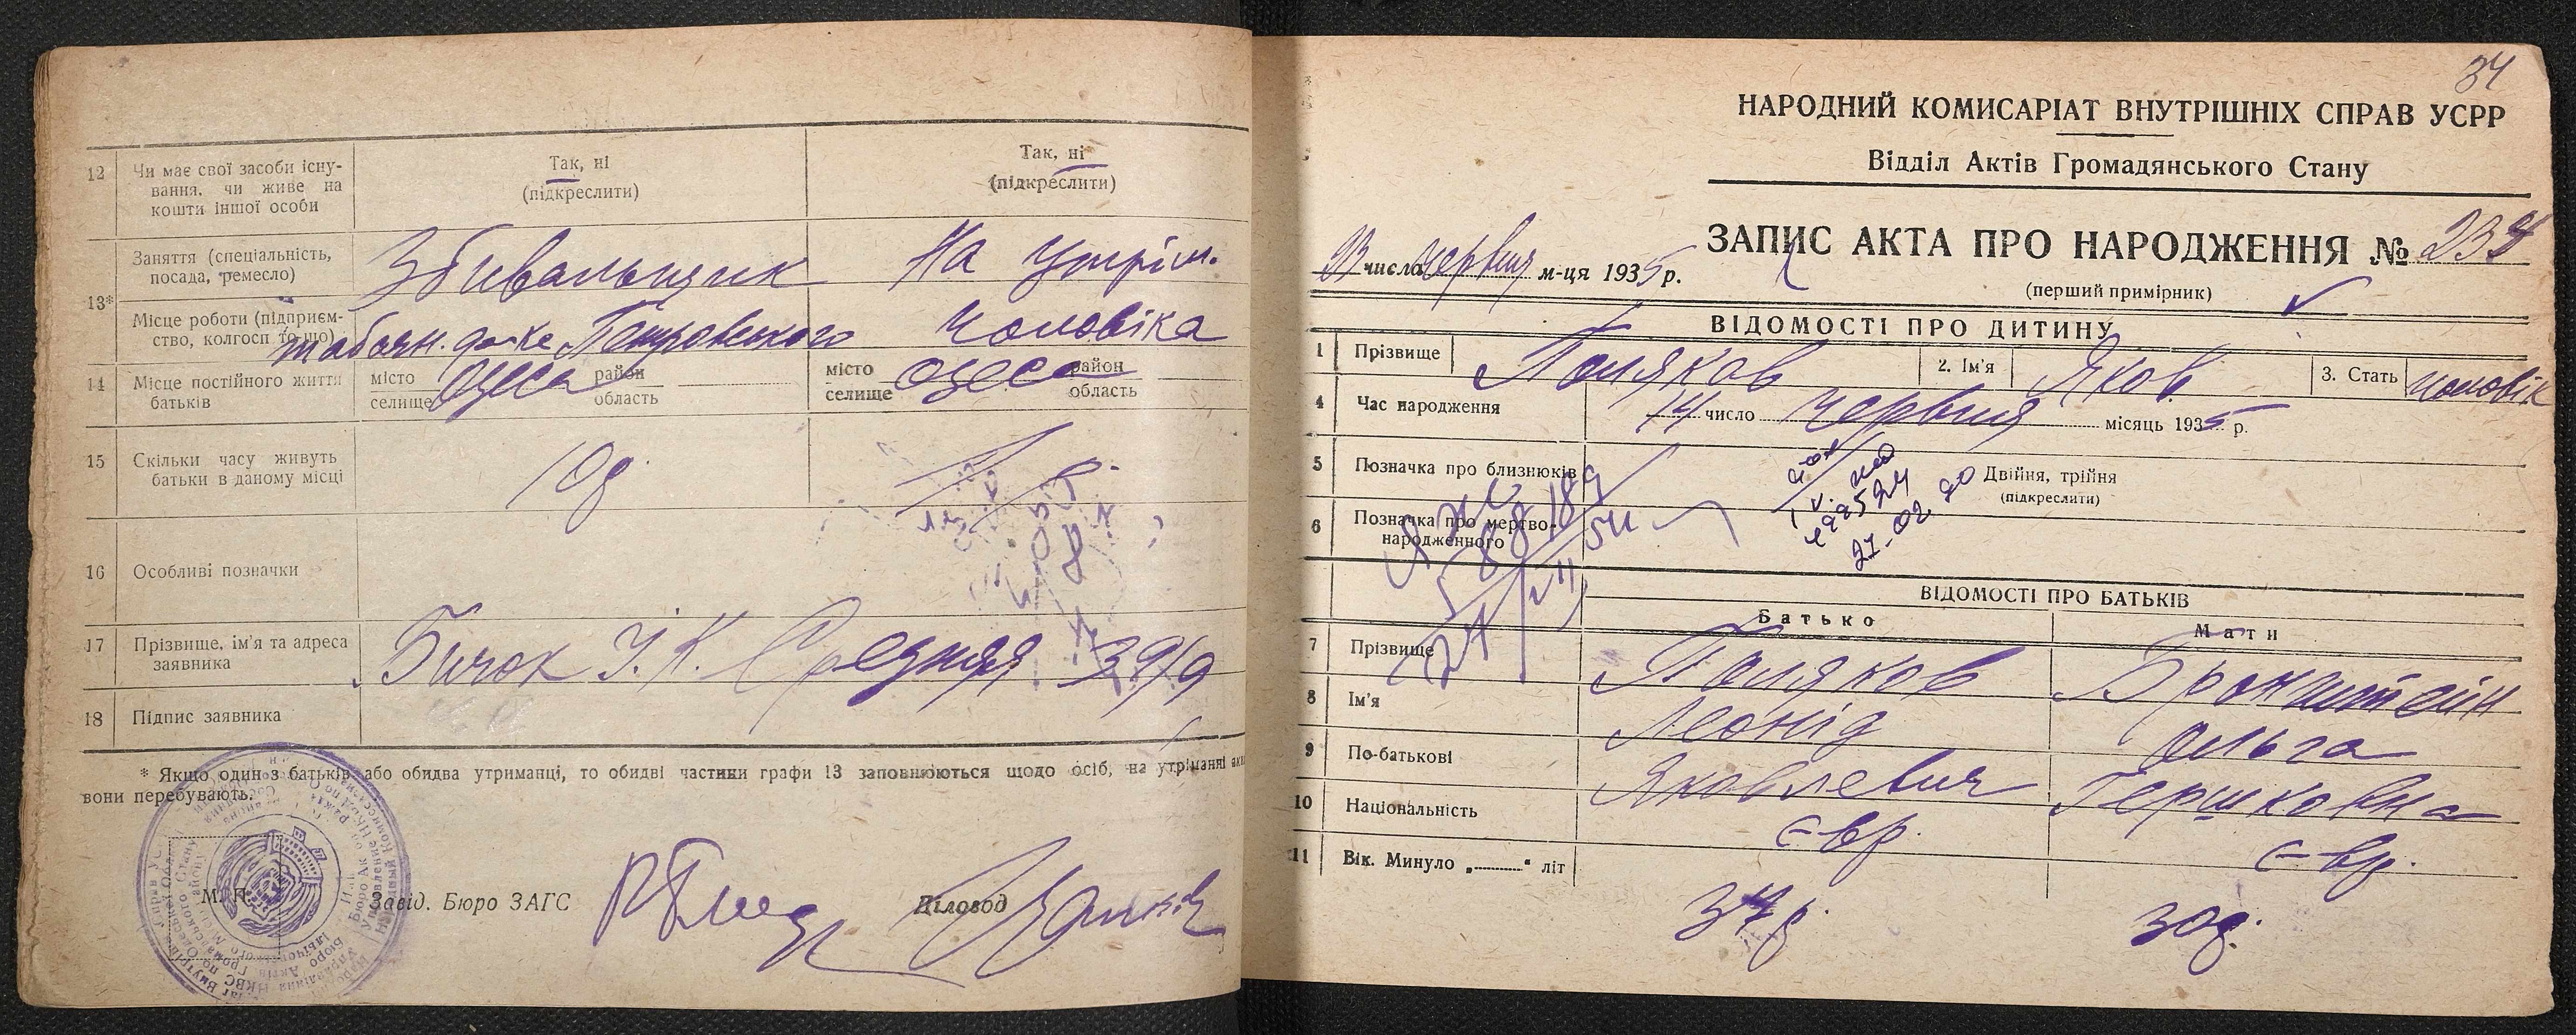 12 Чи має свої засоби існу-
вання, чи живе на
кошти іншої особи
Так, ні
(підкреслити)
Так, ні
(підкреслити)
13*
Заняття (спеціальність,
посада, ремесло)
Збивальщик
На утрім.
Місце роботи (підприєм-
ство, колгосп то-що)
Петровського
чоловіка
14 Місце постійного життя
батьків
місто
селище
Одеса
район
область
місто
селище
Одеса
район
область
15 Скільки часу живуть
батьки в даному місці
16 Особливі позначки
17 Прізвище, ім'я та адреса
заявника
Бичок І. К. Средняя 39/9
18 Підпис заявника
* Якщо один з батьків або обидва утриманці, то обидві частини графи 13 заповнюються щодо осіб, на утриманні яких
вони перебувають.
М. П.
Завід. Бюро ЗАГС
Діловод
34
НАРОДНИЙ КОМИСАРІАТ ВНУТРІШНІХ СПРАВ УСРР
Відділ Актів Громадянського Стану
ЗАПИС АКТА ПРО НАРОДЖЕННЯ № 234
числа червня м-ця 1935 р.
(перший примірник)
ВІДОМОСТІ ПРО ДИТИНУ
1 Прізвище Поляков 2. Ім'я Яков 3. Стать чоловік
4 Час народження 14 число червня місяць 1935 р.
5 Позначка про близнюків
Двійня, трійня
(підкреслити)
6 Позначка про мертво-
народженного
ВІДОМОСТІ ПРО БАТЬКІВ
Батько Мати
7 Прізвище Поляков Бронштейн
8 Ім'я Леонід Ольга
9 По-батькові Яковлевич Гершковна
10 Національність євр. євр.
11 Вік. Минуло „........“ літ
34 р. 30 р.